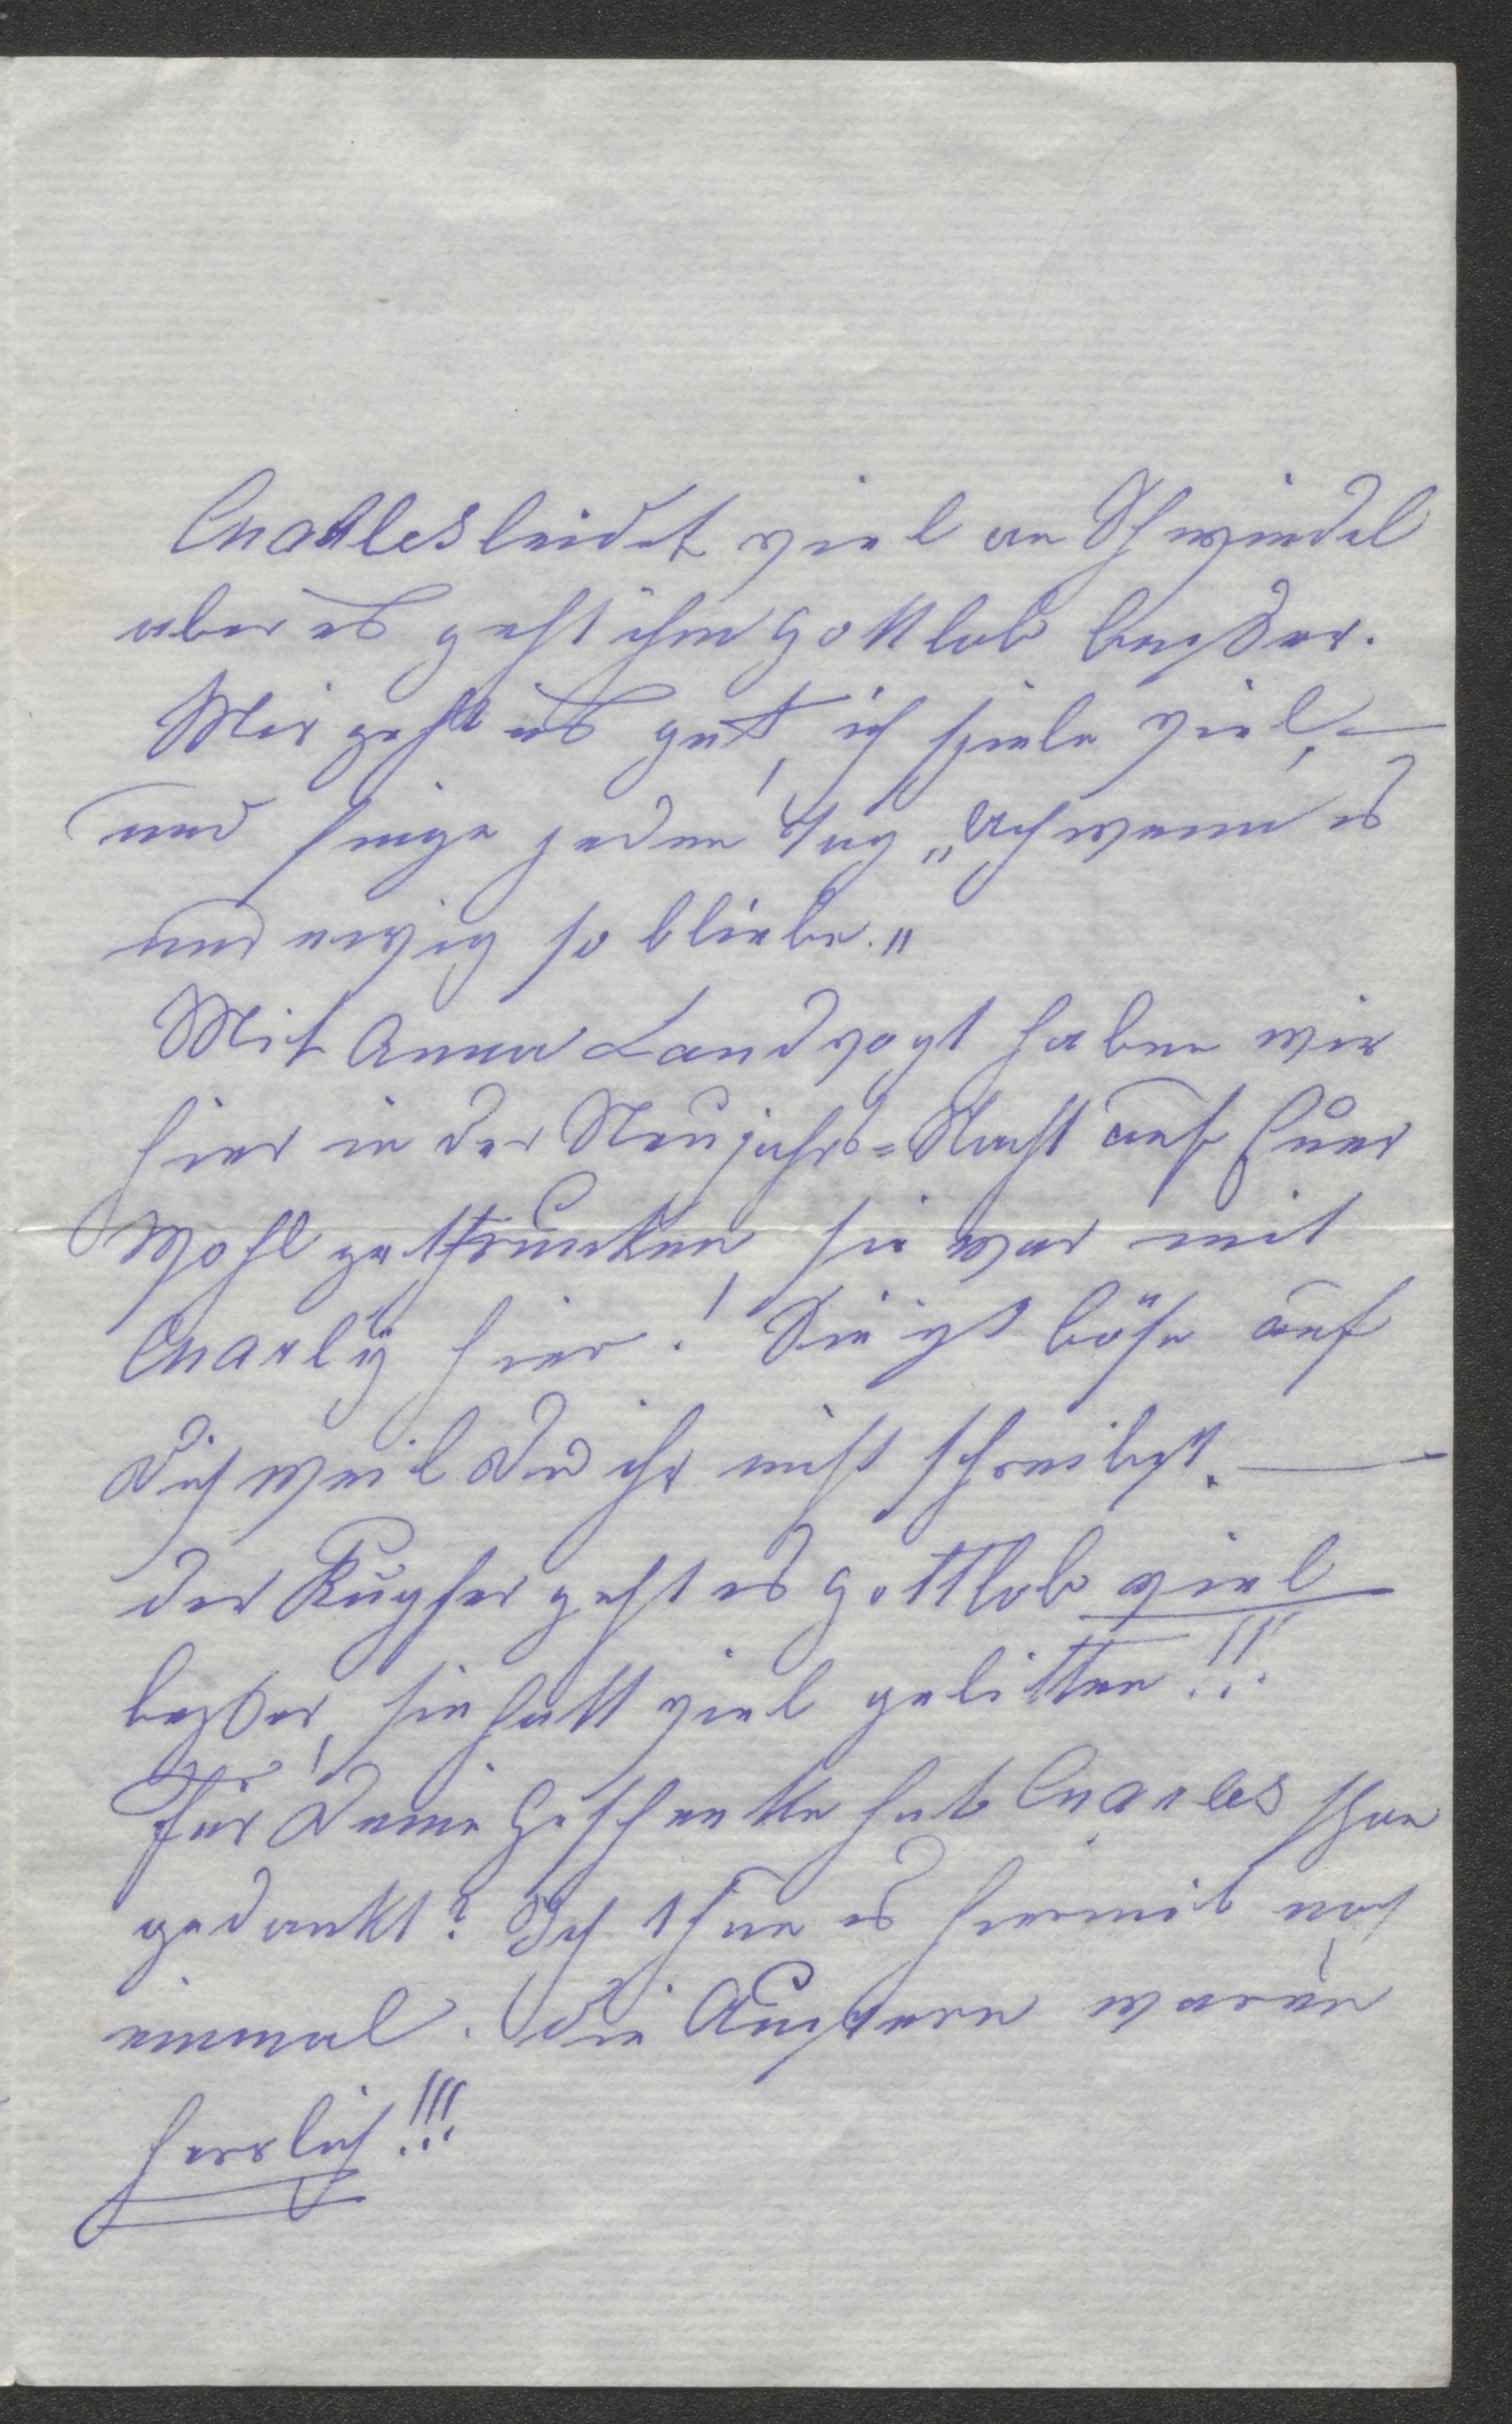 Charles leidet viel an Schwindel
aber es geht ihm Gottlob beßer.
Mir geht es gut, ich spiele viel, —
und singe jeden Tag „Ach wenn es
nur ewig so bliebe."
Mit Anna Landvogt haben wir
hier in der Neujahrs=Nacht auf Euer
Wohl getrunken, sie war mit
Charly hier! Sie ist böse auf
Dich weil Du ihr nicht schreibst. —
Der geht es Gottlob viel
beßer, sie hatt viel gelitten!!!
Für Deine Geschenke hat Charles schon
gedankt? Ich thue es hiermit noch
einmal. Die Austern waren
herrlich!!!